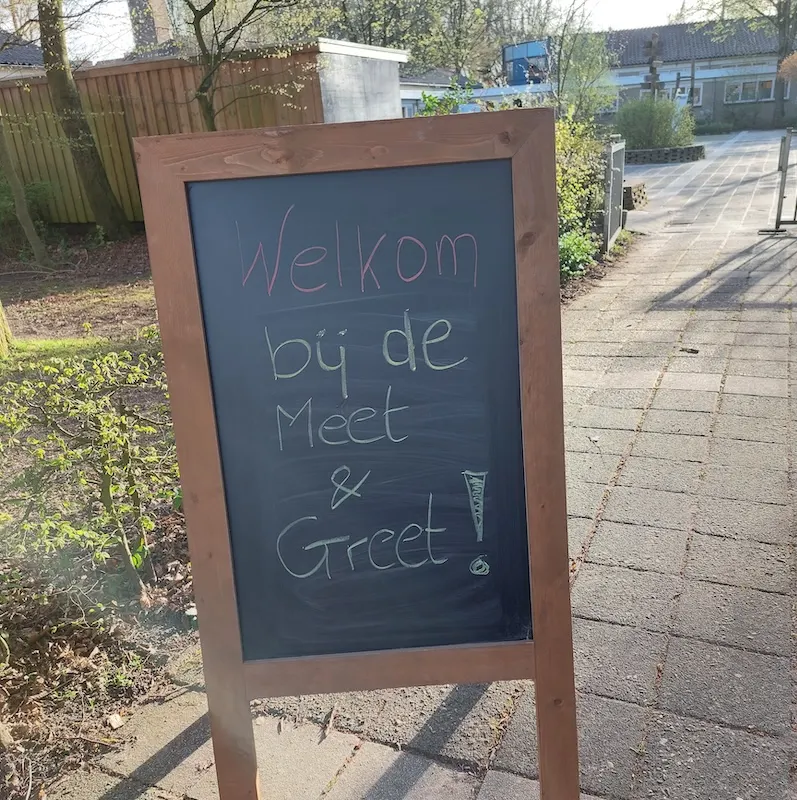 Welkom
bij de
Meet
&
Greet!